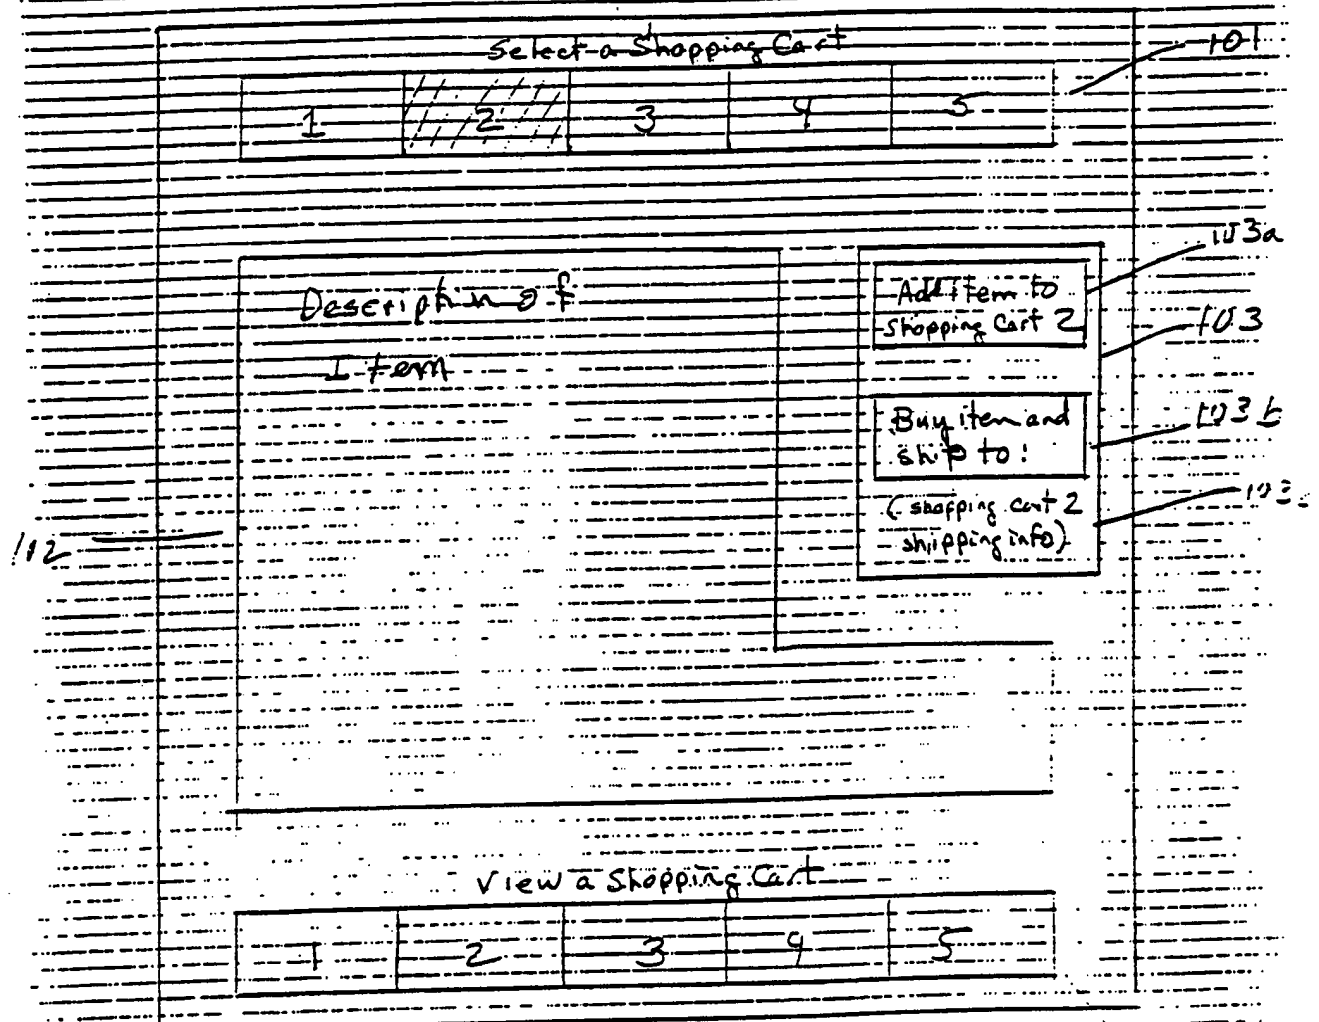 Select a Shopping Cart
101
1 2 3 4 5
103a
Description of
Item
Add item to
shopping cart 2
103
Buy item and
ship to:
103b
(shopping cart 2
shipping info)
102
View a Shopping Cart
1 2 3 4 5